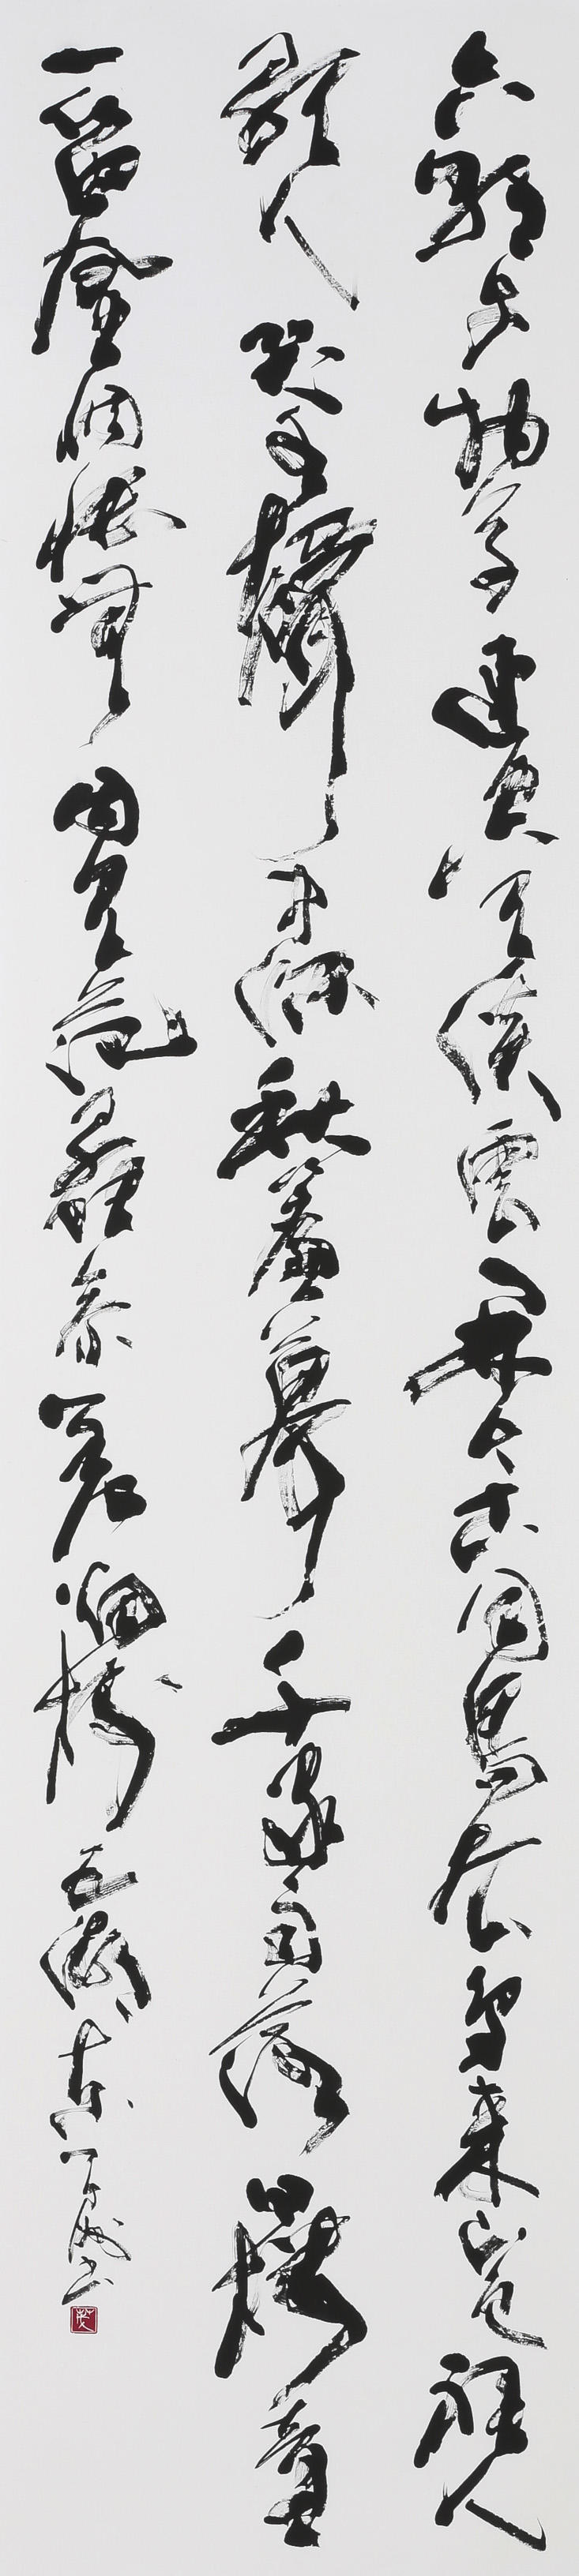 六朝文物草連空天淡雲閑今古同鳥去鳥來山色裏人
歌人哭水聲中深秋簾幕千家雨落日樓臺
一笛風惆悵無因見范蠡參差煙樹五湖東